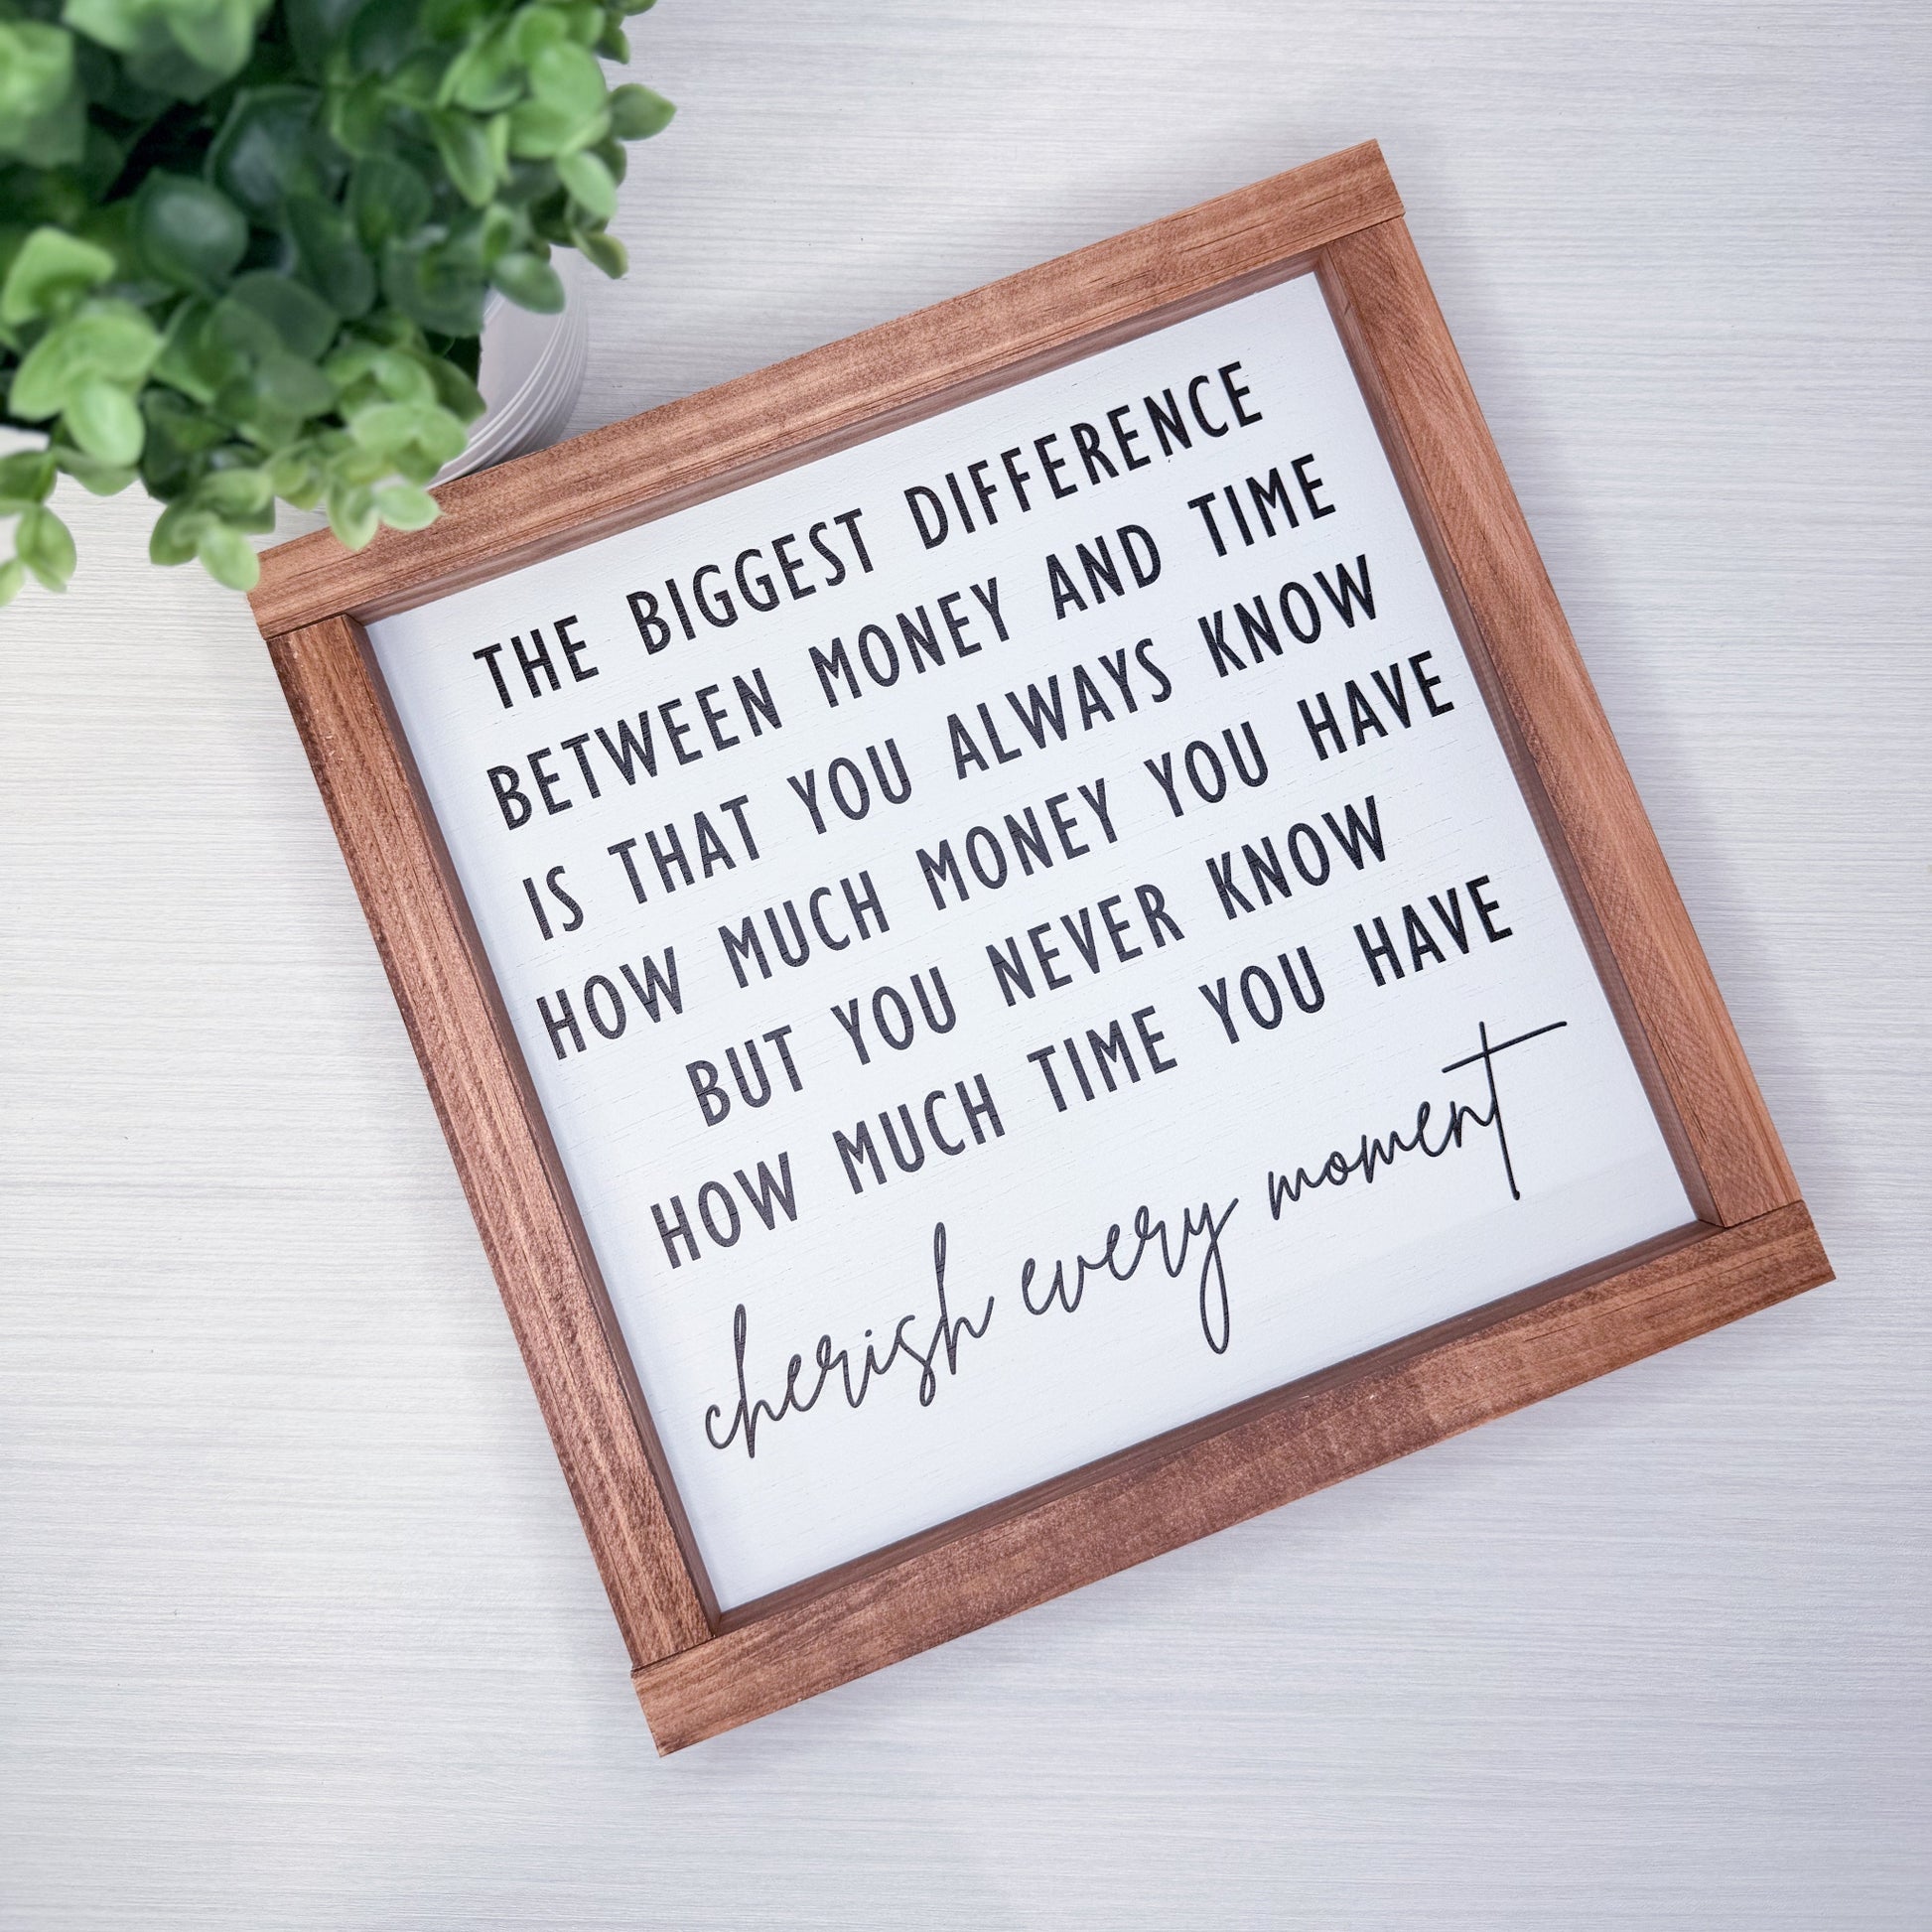 THE BIGGEST DIFFERENCE
BETWEEN MONEY AND TIME
IS THAT YOU ALWAYS KNOW
HOW MUCH MONEY YOU HAVE
BUT YOU NEVER KNOW
HOW MUCH TIME YOU HAVE
cherish every moment